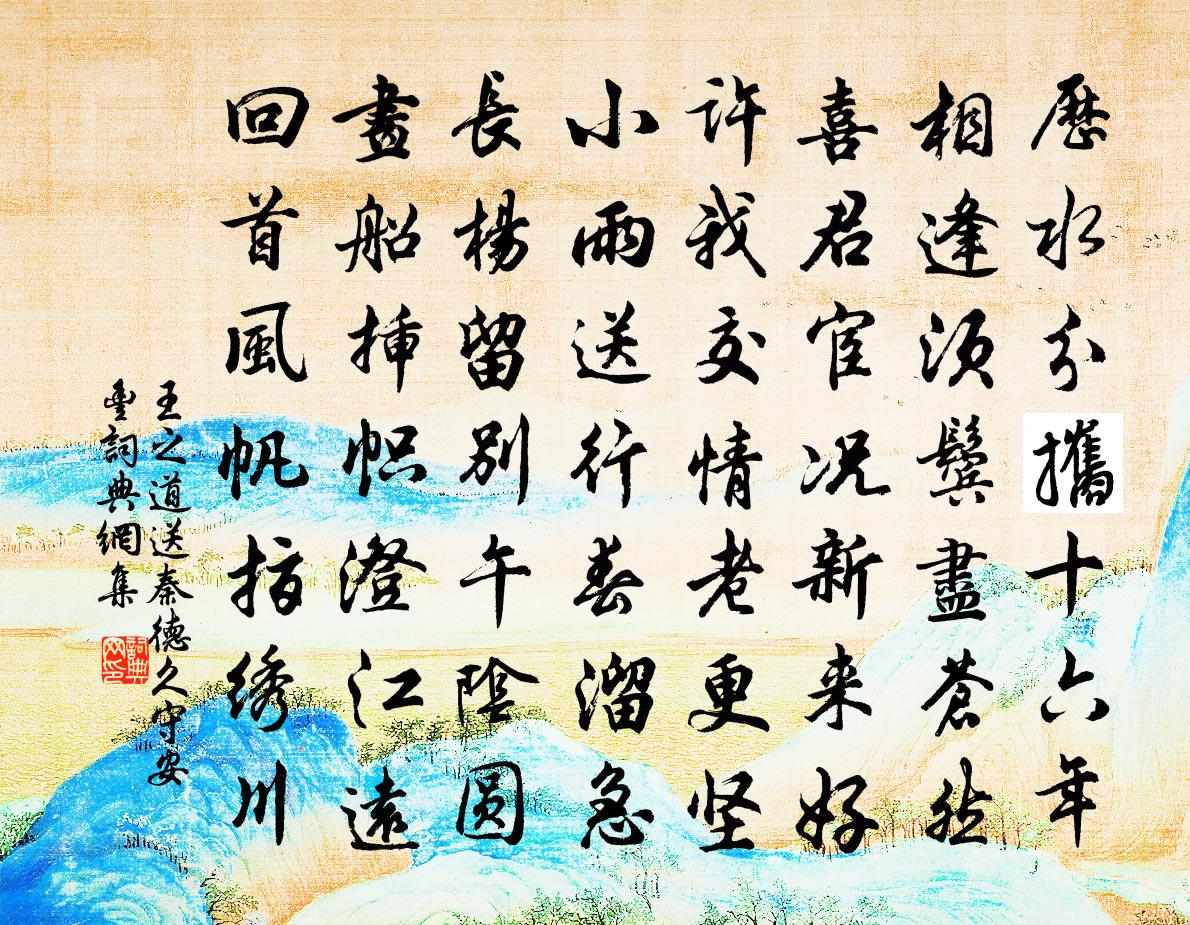 歷水分攜十六年
相逢須鬢盡蒼然
喜君宦况新来好
許我交情老更坚
小雨送行春溜急
長楊留别午陰圓
畫船挿幟澄江遠
回首風帆指绣川
王之道送秦德久守安
豐詞典網集